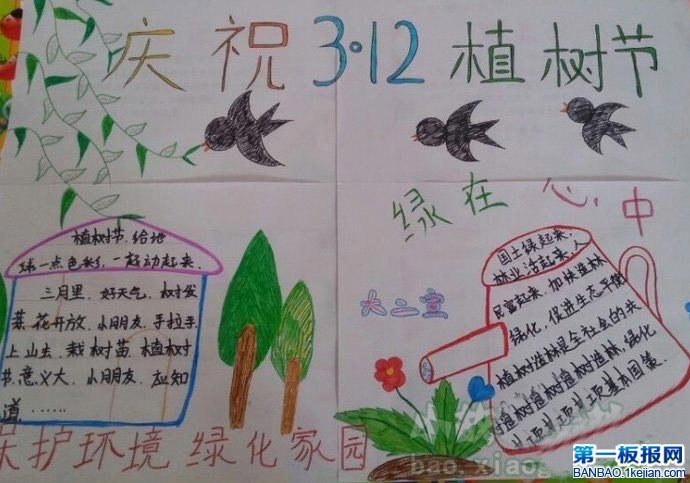 庆祝3·12植树节
绿在心中
植树节.给地
球一点色彩,一起动起来.
三月里,好天气,树发
芽.花开放,小朋友,手拉手,
上山去,栽树苗,植树树
节.意义大,小朋友,应知
道……
国土绿起来.
林业活起来.人
民富起来.加快造林
绿化,促进生态平衡
植树造林是全社会的共
大二宣
保护环境 绿化家园
第一板报网
BANBAO.1kejian.com